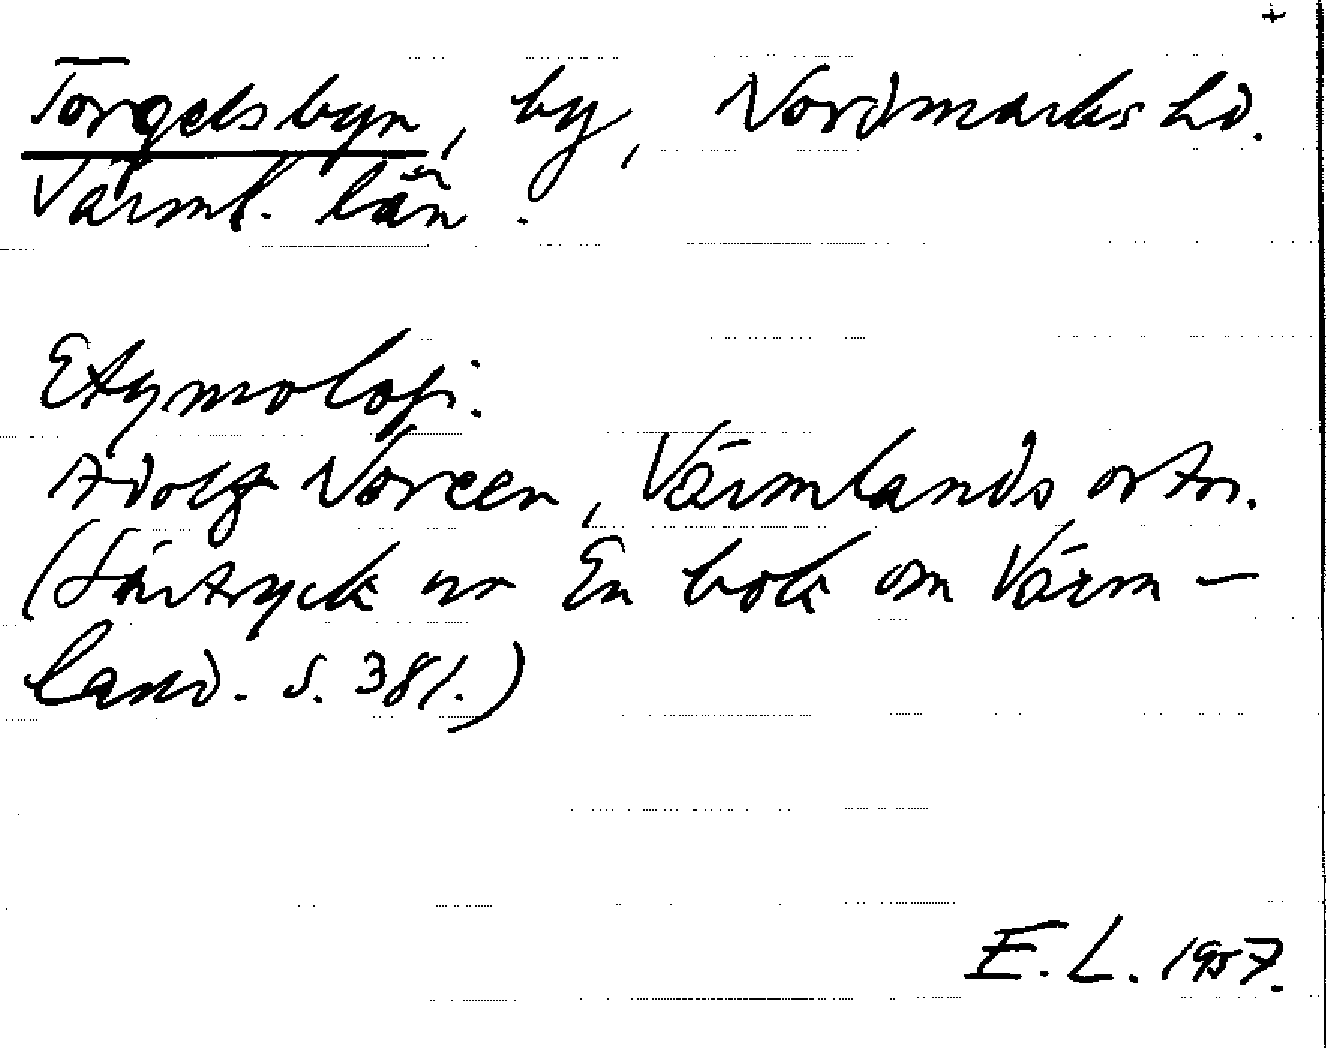 +
Torgelsbyn, by, Nordmarks hd.
Värml. län.
Etymologi.
Adolf Noreen, Värmlands ortn.
(Särtryck ur En bok om Värm-
land. S. 381.)
E. L. 1957.